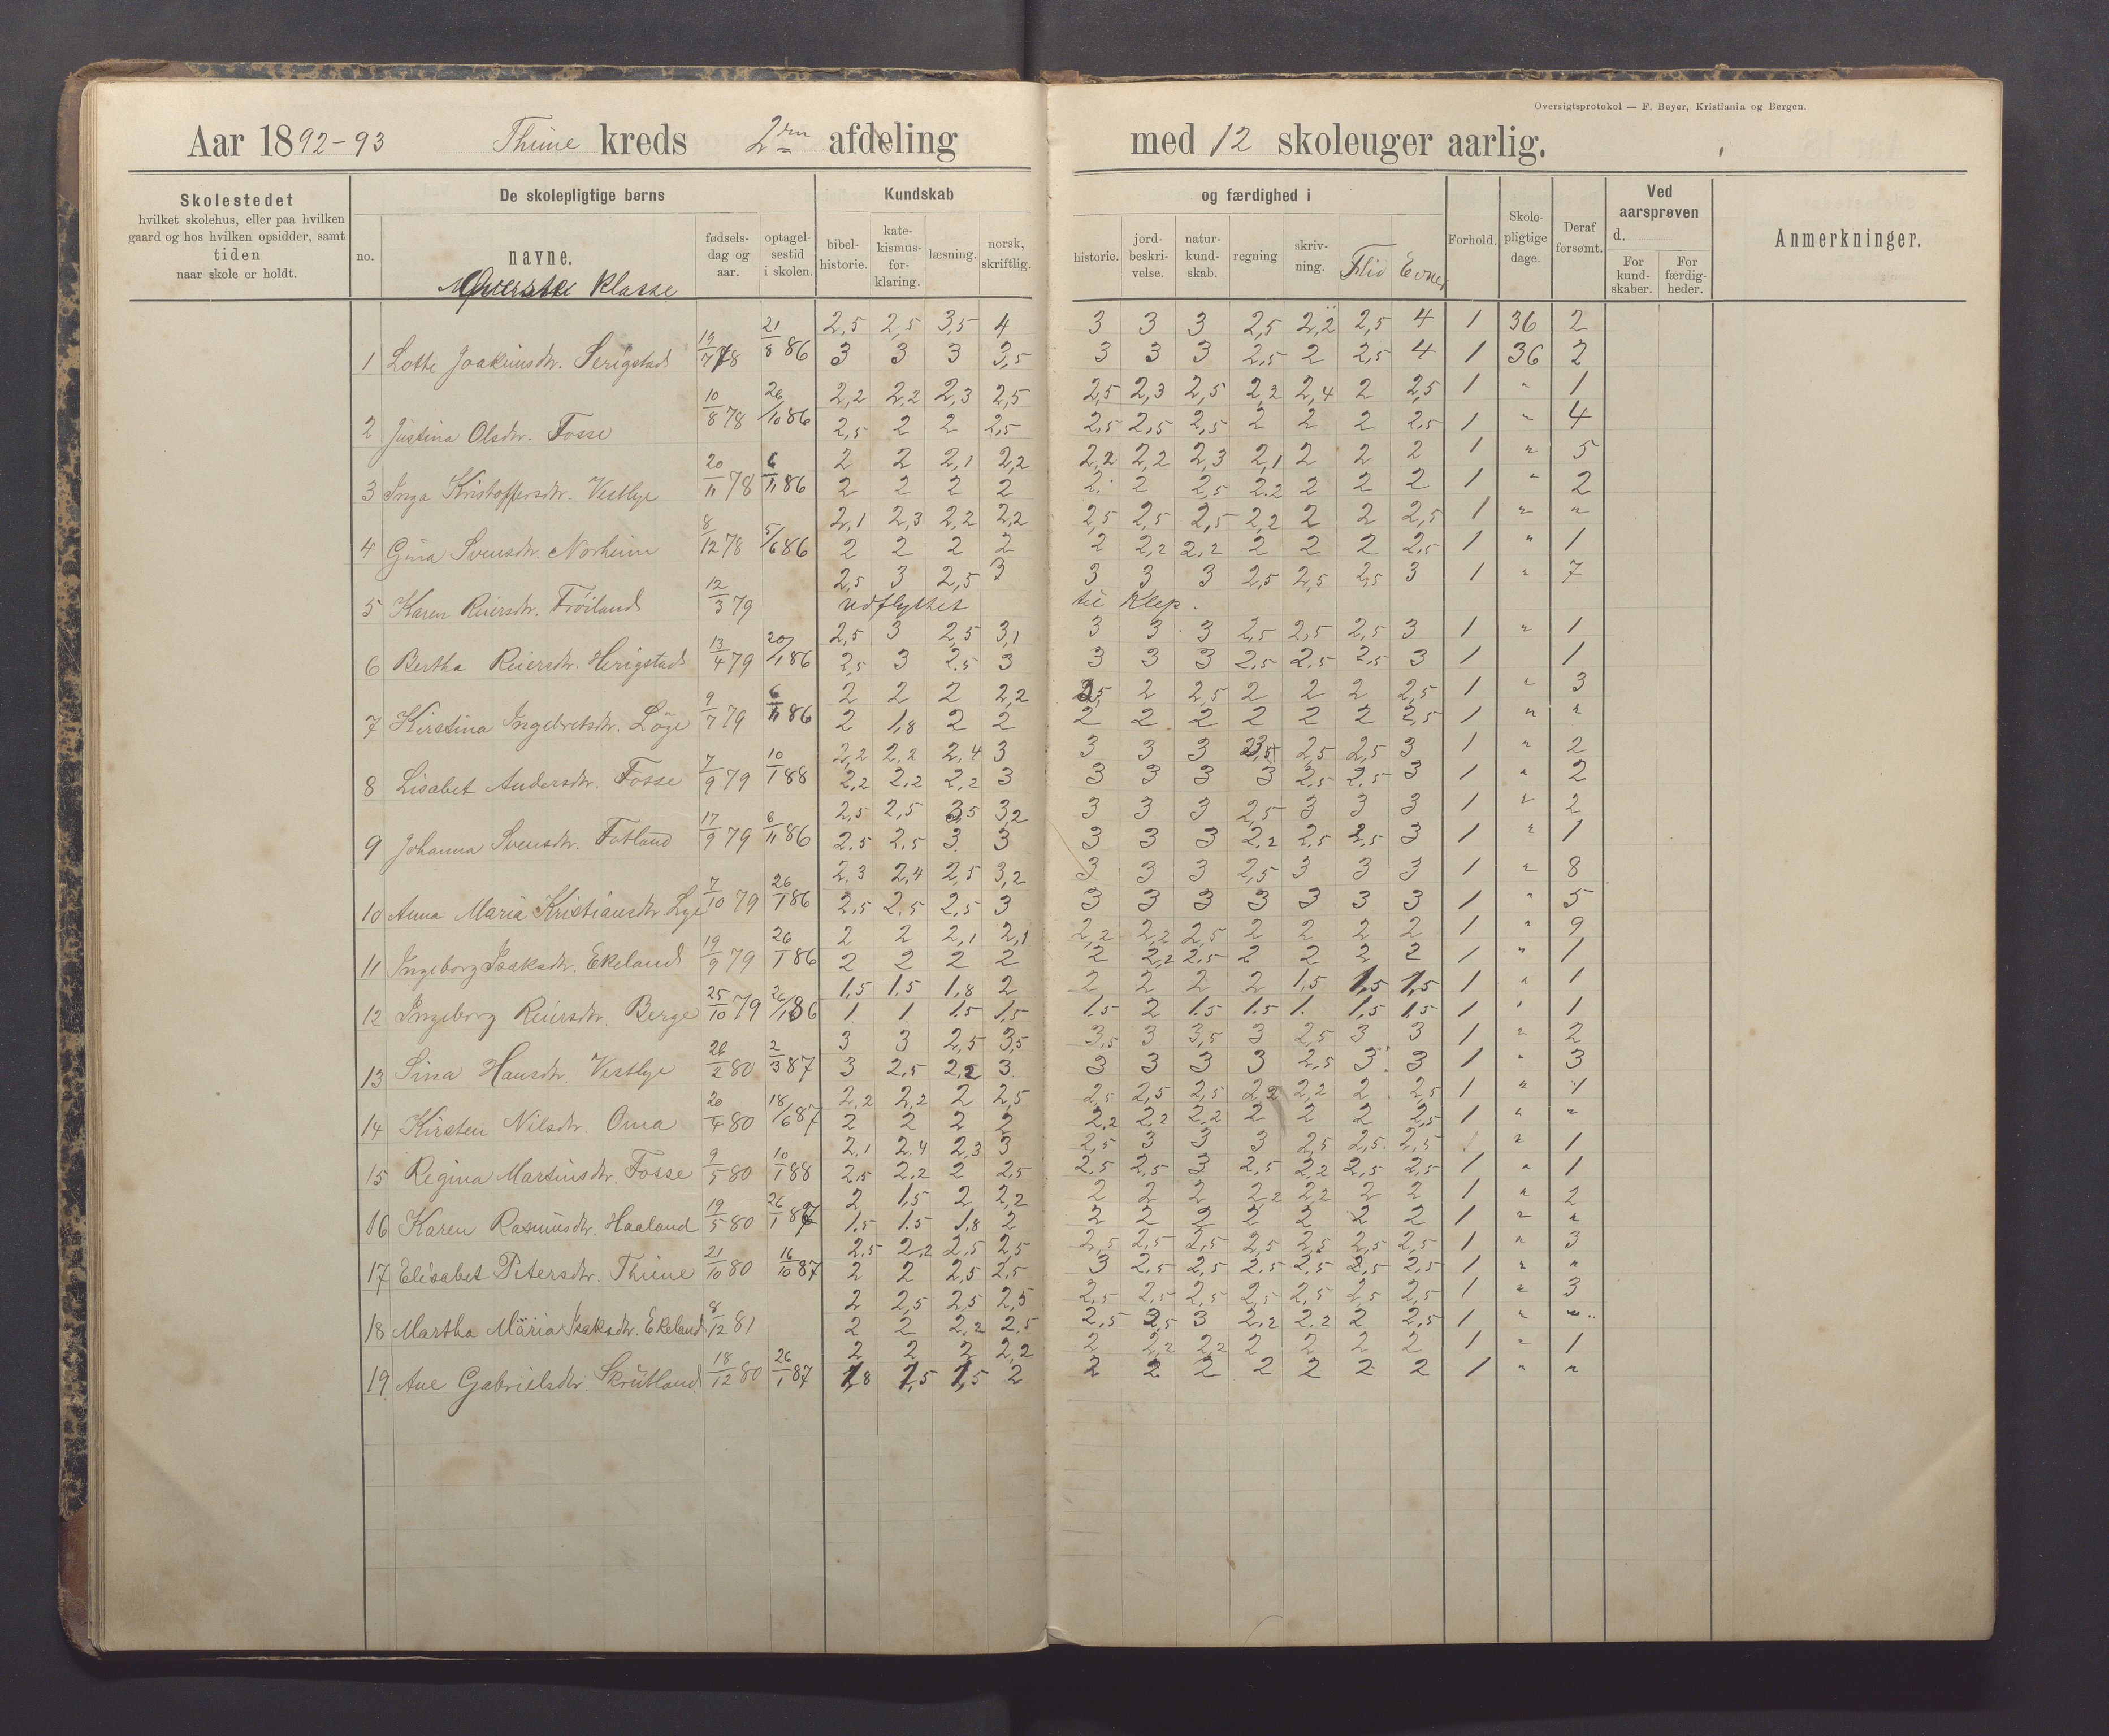 Oversigtsprotokol — F. Beyer, Kristiania og Bergen.
Aar 1892-93 Thime kreds 2den afdeling med 12 skoleuger aarlig.
Skolestedet hvilket skolehus, eller paa hvilken gaard og hos hvilken opsidder, samt tiden naar skole er holdt.
De skolepligtige børns
no. navne. fødsels-dag og aar. optagel-sestid i skolen.
Kundskab og færdighed i
bibel-historie. kate-kismus-for-klaring. læsning. norsk, skriftlig. historie. jord-beskri-velse. natur-kund-skab. regning skriv-ning. Flid Evner
Forhold. Skole-pligtige dage. Deraf forsømt.
Ved aarsprøven d. For kund-skaber. For færdig-heder.
Anmerkninger.
klasse
2,5 2,5 3,5 4 3 3 3 2,5 2,2 2,5 4 1 36 2
1 Lotte Joakimsdtr. Serigstad 19/7 78 21/8 86 3 3 3 3,5 3 3 3 2,5 2 2,5 4 1 36 2
2,2 2,2 2,3 2,5 2,5 2,3 2,5 2,2 2,4 2 2,5 1 " 1
2 Justina Olsdtr. Fosse 10/8 78 26/10 86 2,5 2 2 2,5 2,5 2,5 2,5 2 2 2 2,5 1 " 4
2 2 2,1 2,2 2,2 2,2 2,3 2,1 2 2 2 1 " 5
3 Inga Kristoffersdtr. Vestlye 20/11 78 6/11 86 2 2 2 2 2 2 2,5 2.2 2 2 2 1 " 2
2,1 2,3 2,2 2,2 2,5 2,5 2,5 2,2 2 2 2,5 1 " "
4 Gina Svensdtr. Norheim 8/12 78 5/6 86 2 2 2 2 2 2,2 2,2 2 2 2 2,5 1 " 1
2,5 3 2,5 3 3 3 3 2,5 2,5 2,5 3 1 " 7
5 Karen Reiersdtr. Frøiland 12/3 79 udflyttet til Klep.
2,5 3 2,5 3,1 3 3 3 2,5 2,5 2,5 3 1 " 1
6 Bertha Reiersdtr. Herigstad 13/4 79 20/1 86 2,5 3 2,5 3 3 3 3 2,5 2.5 2,5 3 1 1
2 2 2 2,2 2,5 2 2,5 2 2 2 2,5 1 " 3
7 Kirstina Ingebretsdtr. Løge 9/7 79 6/11 86 2 1,8 2 2 2 2 2 2 2 2 2,5 1 " "
2,2 2,2 2,4 3 3 3 3 2,5 2,5 2,5 3 1 " 2
8 Lisabet Andersdtr. Fosse 7/9 79 10/1 88 2,2 2,2 2,2 3 3 3 3 3 2,5 2,5 3 1 " 2
2,5 2,5 3,5 3,2 3 3 3 2,5 3 3 3 1 " 2
9 Johanna Svensdtr. Fotland 17/9 79 6/11 86 2.5 2.5 3. 3 3 3 3 2.2 2.5 2,5 3 1 " 1
2.3 2,4 2,5 3,2 3 3 3 2,5 3 3 3 1 " 8
10 Anna Maria Kristiansdtr Lye 7/10 79 26/1 86 2,5 2,5 2,5 3 3 3 3 3 3 3 3 1 " 5
2 2 2,1 2,1 2,2 2,2 2,5 2 2 2 2 1 " 9
11 Ingeborg Isaksdtr. Ekeland 19/9 79 26/1 86 2 2 2 2 2 2,2 2,5 2 2 2 2 1 " 1
1,5 1,5 1,8 2 2 2 2 2 1,5 1,5 1,5 1 " 1
12 Ingeborg Reiersdtr. Berge 25/10 79 26/1 86 1 1 1.5 1,5 1.5 2 1.5 1.5 1. 1,5 1.5 1 " 1
3 3 2,5 3,5 3,5 3 3,5 3 2,5 3 3 1 " 2
13 Sina Hansdtr. Vestlye 26/2 80 2/3 87 3 2,5 2,2 3 3 3 3 3 2,5 3 3 1 " 3
2,2 2,2 2 2,5 2,5 2,5 2,5 2,2 2,2 2 2,5 1 " 1
14 Kirsten Nilsdtr. Oma 20/4 80 18/6 87 2 2 2 2 2,2 2,2 2,2 2 2 2 2,5 1 " "
2,1 2.4 2,3 3 2,5 3 3 3 2,5 2,5 2,5 1 " 1
15 Regina Martinsdtr. Fosse 9/5 80 10/1 88 2,5 2,2 2 2,5 2,5 2,5 3 2,5 2,2 2,5 2,5 1 " 1
2 1,5 2 2,2 2 2 2 2,2 2,2 2 2 1 " 2
16 Karen Rasmusdtr. Haaland 19/5 80 26/1 87 1.5 1.5 1.8 2 2 2 2 2 2 2 2 1 " "
2.5 2,2 2,5 2,5 2,5 2,5 2,5 2,5 2,5 2,5 2,5 1 " 3
17 Elisabet Petersdtr. Thime 21/10 80 16/10 87 2 2 2,5 2,5 3 2,5 2,5 2.5 2.5 2,5 2,5 1 " "
2 2,5 2,5 2,5 2,5 2,5 2,5 2,5 2,5 2,5 2,5 1 " 3
18 Martha Maria Isaksdtr. Ekeland 8/12 81 2 2 2,2 2,5 2,5 2,5 3 2,2 2.2 2 2,5 1 " "
2 2 2 2,2 2 2,2 2,2 2 2 2 2 1 " 1
19 Ane Gabrielsdtr. Skrütland 18/12 80 26/1 87 1,8 1,5 1,5 2 2 2 2 2 2 2 2 1 " "